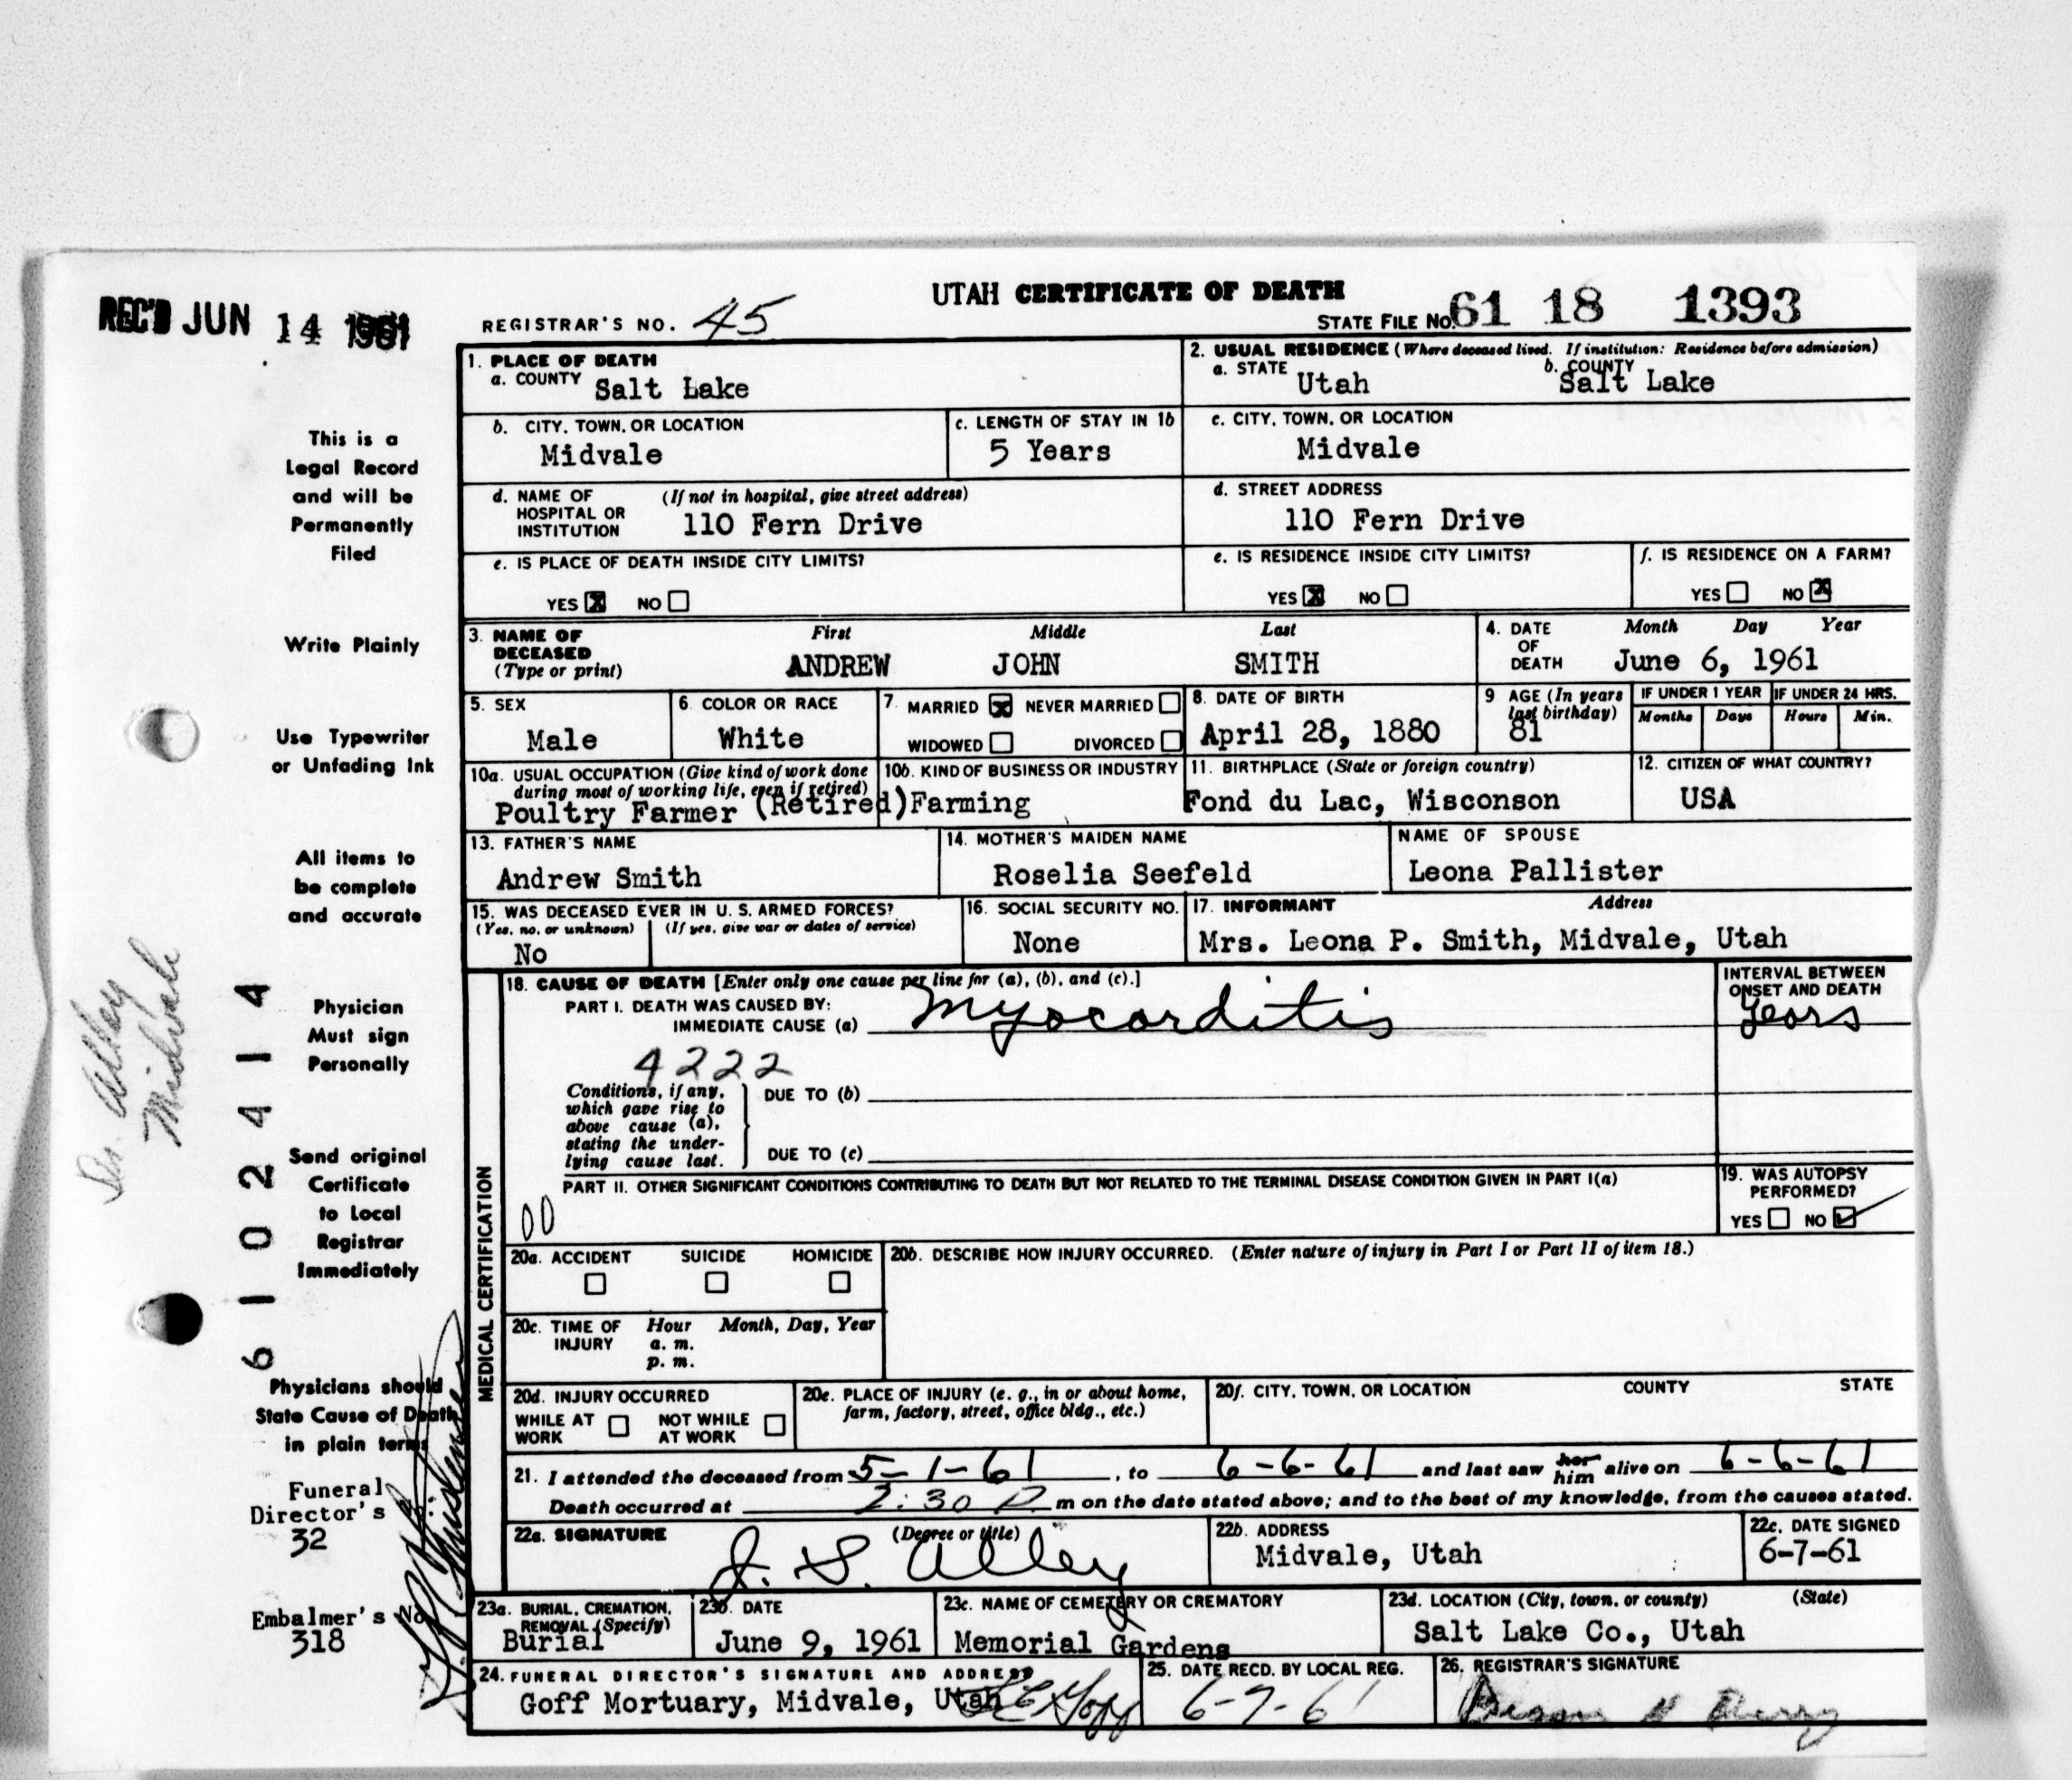 UTAH CERTIFICATE OF DEATH
REC'D JUN 14 1961
REGISTRAR'S NO. 45
STATE FILE NO. 61 18 1393
1. PLACE OF DEATH
a. COUNTY Salt Lake
2. USUAL RESIDENCE (Where deceased lived. If institution: Residence before admission)
a. STATE Utah b. COUNTY Salt Lake
b. CITY, TOWN, OR LOCATION Midvale
c. LENGTH OF STAY IN 1b 5 Years
c. CITY, TOWN, OR LOCATION Midvale
d. NAME OF HOSPITAL OR INSTITUTION (If not in hospital, give street address) 110 Fern Drive
d. STREET ADDRESS 110 Fern Drive
e. IS PLACE OF DEATH INSIDE CITY LIMITS? YES X NO
e. IS RESIDENCE INSIDE CITY LIMITS? YES X NO
f. IS RESIDENCE ON A FARM? YES NO X
3. NAME OF DECEASED (Type or print) First Middle Last
ANDREW JOHN SMITH
4. DATE OF DEATH Month Day Year
June 6, 1961
5. SEX Male
6. COLOR OR RACE White
7. MARRIED X NEVER MARRIED
WIDOWED DIVORCED
8. DATE OF BIRTH April 28, 1880
9 AGE (In years last birthday) 81
IF UNDER 1 YEAR Months Days
IF UNDER 24 HRS. Hours Min.
10a. USUAL OCCUPATION (Give kind of work done during most of working life, even if retired)
Poultry Farmer (Retired)
10b. KIND OF BUSINESS OR INDUSTRY Farming
11. BIRTHPLACE (State or foreign country) Fond du Lac, Wisconson
12. CITIZEN OF WHAT COUNTRY? USA
13. FATHER'S NAME Andrew Smith
14. MOTHER'S MAIDEN NAME Roselia Seefeld
NAME OF SPOUSE Leona Pallister
15. WAS DECEASED EVER IN U. S. ARMED FORCES?
(Yes, no, or unknown) (If yes, give war or dates of service)
No
16. SOCIAL SECURITY NO. None
17. INFORMANT Address
Mrs. Leona P. Smith, Midvale, Utah
MEDICAL CERTIFICATION
18. CAUSE OF DEATH [Enter only one cause per line for (a), (b), and (c).]
PART I. DEATH WAS CAUSED BY:
IMMEDIATE CAUSE (a) Myocarditis
INTERVAL BETWEEN ONSET AND DEATH years
4222
Conditions, if any, which gave rise to above cause (a), stating the underlying cause last.
DUE TO (b)
DUE TO (c)
PART II. OTHER SIGNIFICANT CONDITIONS CONTRIBUTING TO DEATH BUT NOT RELATED TO THE TERMINAL DISEASE CONDITION GIVEN IN PART I(a)
00
19. WAS AUTOPSY PERFORMED?
YES NO ✓
20a. ACCIDENT SUICIDE HOMICIDE
20b. DESCRIBE HOW INJURY OCCURRED. (Enter nature of injury in Part I or Part II of item 18.)
20c. TIME OF INJURY Hour a. m. p. m. Month, Day, Year
20d. INJURY OCCURRED
WHILE AT WORK NOT WHILE AT WORK
20e. PLACE OF INJURY (e. g., in or about home, farm, factory, street, office bldg., etc.)
20f. CITY, TOWN, OR LOCATION COUNTY STATE
21. I attended the deceased from 5-1-61, to 6-6-61 and last saw her him alive on 6-6-61
Death occurred at 2:30 P m on the date stated above; and to the best of my knowledge, from the causes stated.
22a. SIGNATURE (Degree or title) J. S. Alley
22b. ADDRESS Midvale, Utah
22c. DATE SIGNED 6-7-61
23a. BURIAL, CREMATION, REMOVAL (Specify) Burial
23b. DATE June 9, 1961
23c. NAME OF CEMETERY OR CREMATORY Memorial Gardens
23d. LOCATION (City, town, or county) (State)
Salt Lake Co., Utah
24. FUNERAL DIRECTOR'S SIGNATURE AND ADDRESS
Goff Mortuary, Midvale, Utah Goff
25. DATE RECD. BY LOCAL REG. 6-7-61
26. REGISTRAR'S SIGNATURE
This is a
Legal Record
and will be
Permanently
Filed
Write Plainly
Use Typewriter
or Unfading Ink
All items to
be complete
and accurate
Physician
Must sign
Personally
Send original
Certificate
to Local
Registrar
Immediately
Physicians should
State Cause of Death
in plain terms
Funeral
Director's
32
Embalmer's No
318
Dr. Alley
Midvale
61 02414